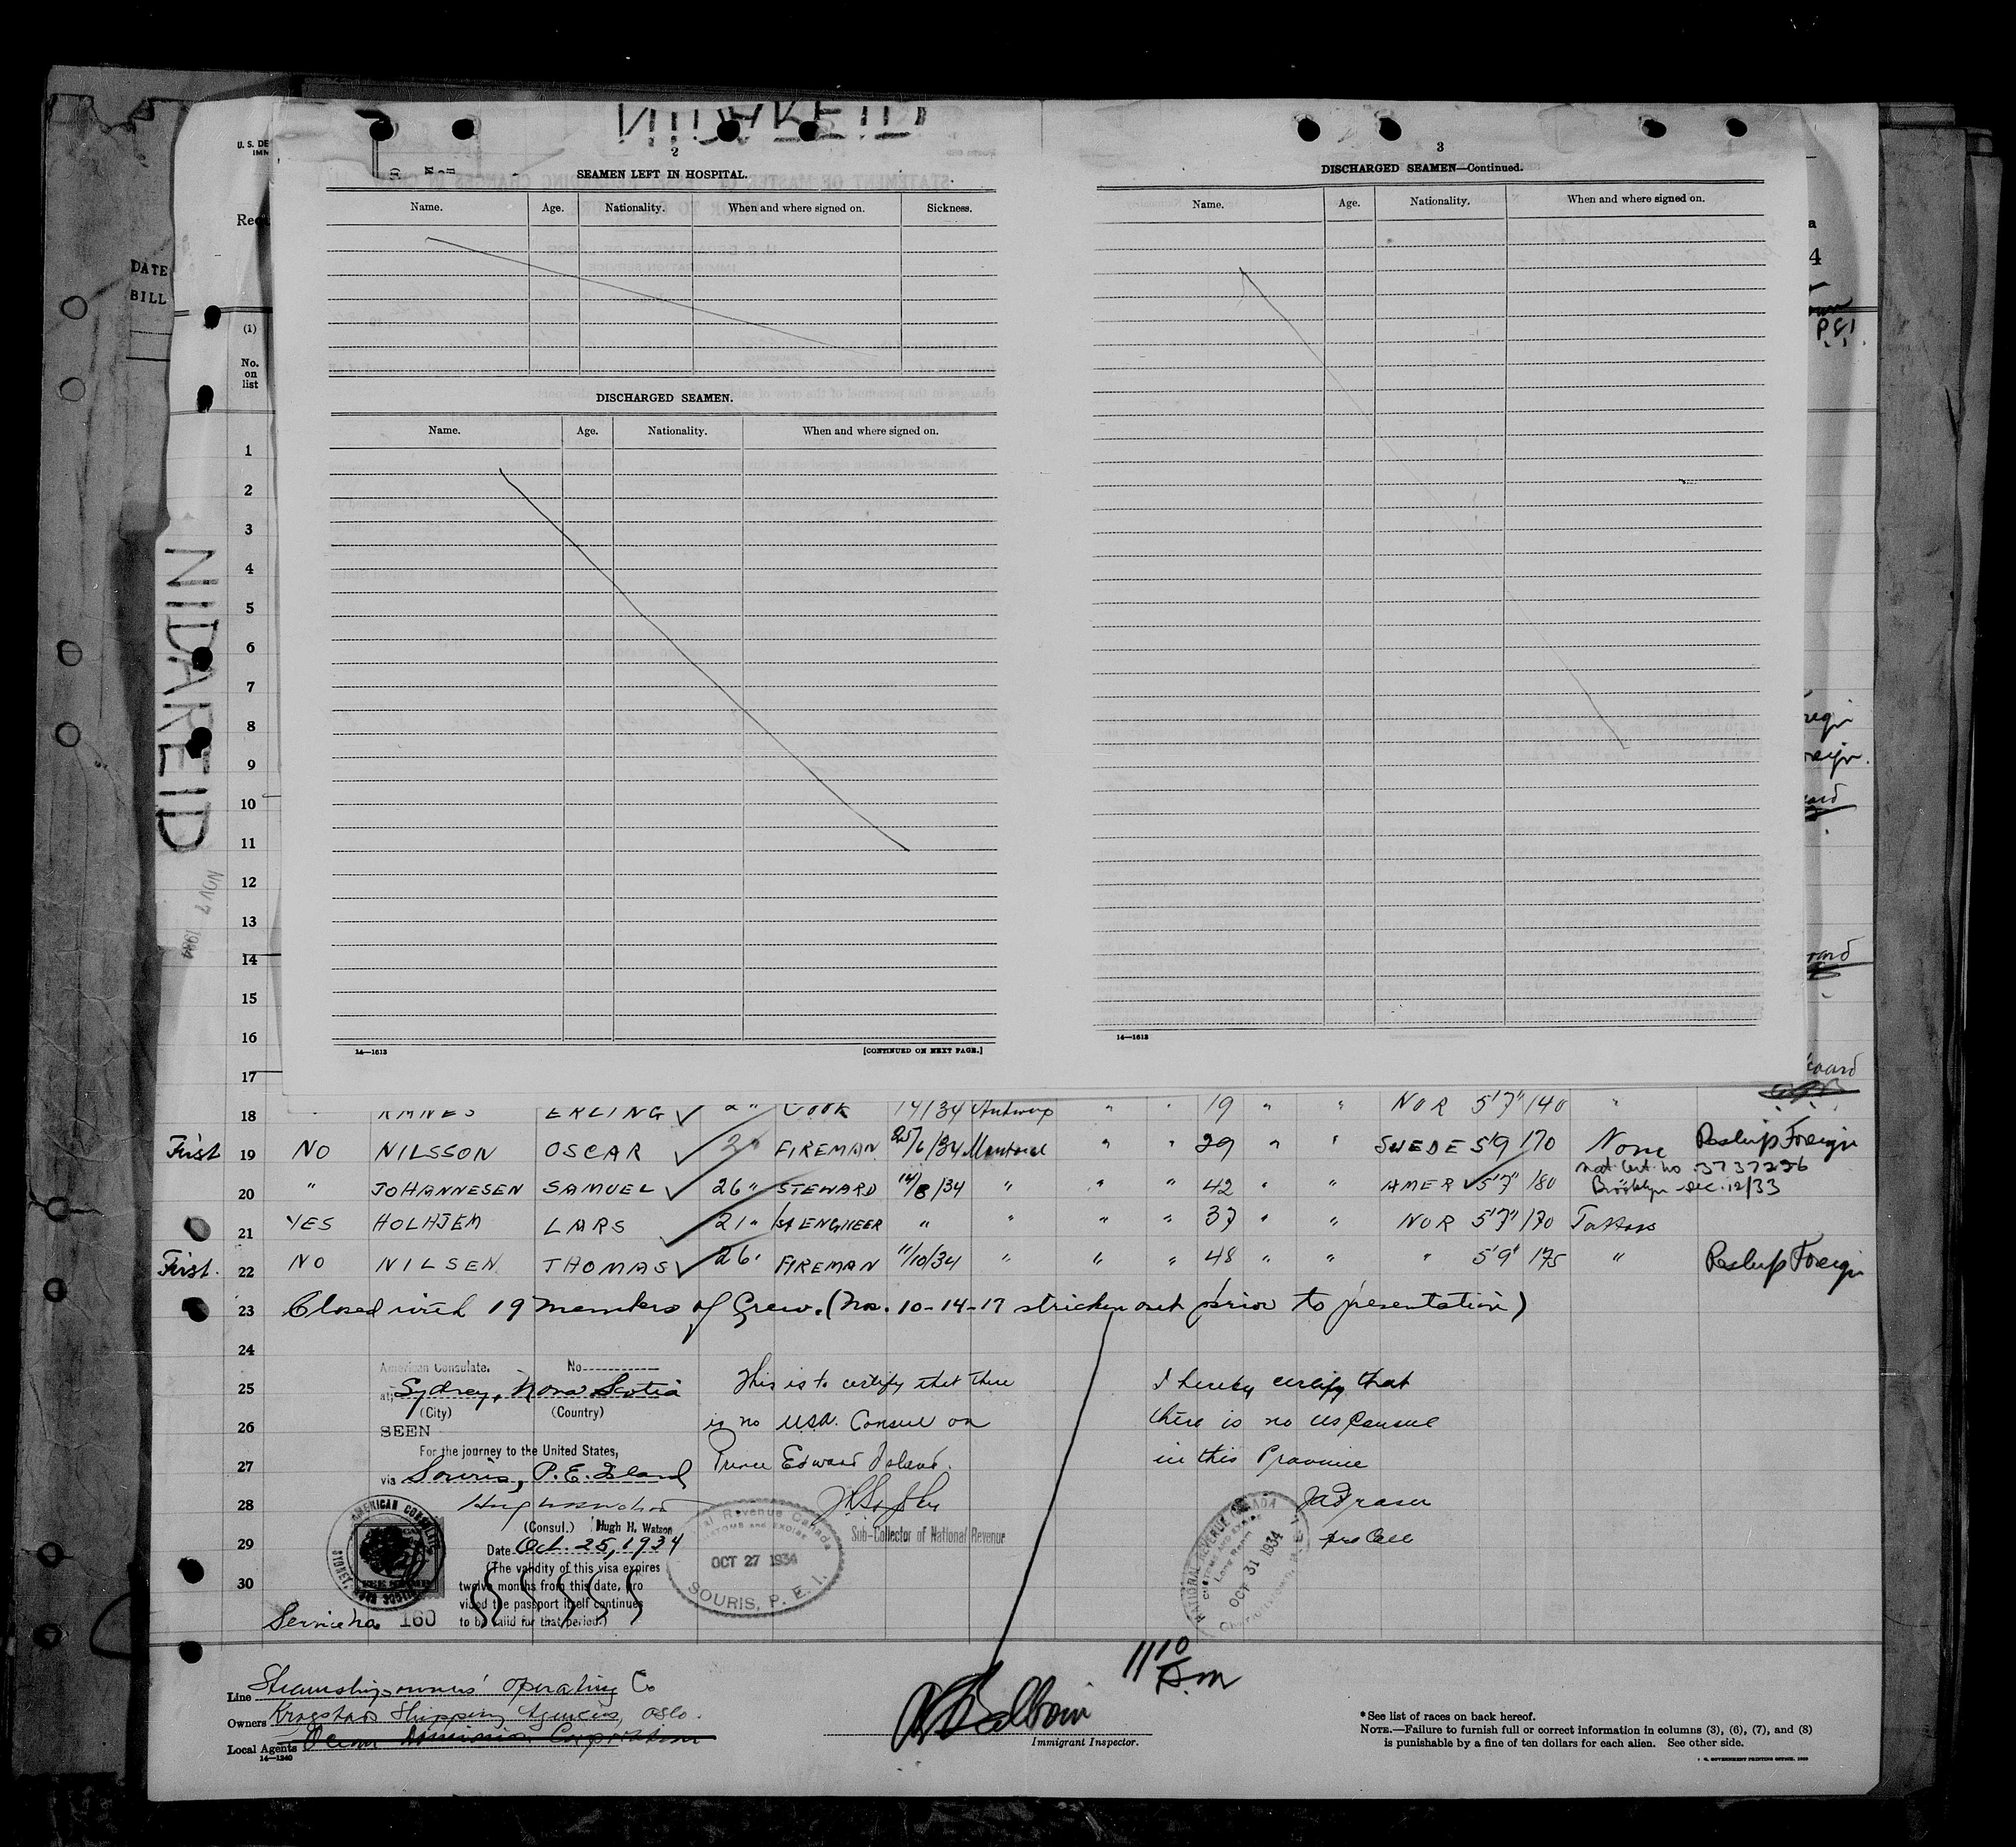 NIDAREID
2
SEAMEN LEFT IN HOSPITAL.
Name. Age. Nationality. When and where signed on. Sickness.
DISCHARGED SEAMEN.
Name. Age. Nationality. When and where signed on.
14—1613 [CONTINUED ON NEXT PAGE.]
3
DISCHARGED SEAMEN—Continued.
Name. Age. Nationality. When and where signed on.
14—1613
U. S. DE
IMM
Req
DATE
BILL
(1)
No.
on
list
a
4
P.E.I.
NIDAREID
NOV 7 1934
1
2
3
4
5
6
7
8
9
10
11
12
13
14
15
16
17
18 ERLING 2 " COOK 14/34 Antwerp " " 19 " " NOR 5'7" 140 "
First 19 NO NILSSON OSCAR 2 " FIREMAN 25/6/34 Montreal " " 29 " " SWEDE 5'9 170 None Reship Foreign
Nat. Cert. no 3737226
20 " JOHANNESEN SAMUEL 26 " STEWARD 14/8/34 " " " 42 " " AMER 5'7" 180 Brooklyn Dec. 12/33
21 YES HOLHJEM LARS 21 " 1st ENGINEER " " " " 37 " " NOR 5'7" 170 Tattoos
First. 22 NO NILSEN THOMAS 26 " FIREMAN 11/10/34 " " " 48 " " " 5'9" 175 " Reship Foreign
23 Closed with 19 members of Crew. (Nos. 10-14-17 stricken out prior to presentation)
24
25
26
27
28
29
30
American Consulate. No
at Sydney, Nova Scotia
(City) (Country)
SEEN
For the journey to the United States,
via Souris, P.E. Island
(Consul.) Hugh H. Watson
Date Oct. 25, 1934
(The validity of this visa expires
twelve months from this date, pro
vided the passport itself continues
to be valid for that period.)
AMERICAN CONSULATE
SYDNEY, NOVA SCOTIA
Service No. 160
This is to certify that there
is no USA. Consul on
Prince Edward Island.
Sub-Collector of National Revenue
National Revenue Canada
CUSTOMS AND EXCISE
OCT 27 1934
SOURIS, P. E. I.
I hereby certify that
there is no US Consul
in this Province
JA Fraser
NATIONAL REVENUE CANADA
CUSTOMS AND EXCISE
Long Room
OCT 31 1934
11 10 Am
Line Steamship-owners' Operating Co
Owners Krogstads Shipping Agencies, Oslo.
Local Agents Ocean Dominion Corporation
14—1240
Immigrant Inspector.
*See list of races on back hereof.
NOTE.—Failure to furnish full or correct information in columns (3), (6), (7), and (8)
is punishable by a fine of ten dollars for each alien. See other side.